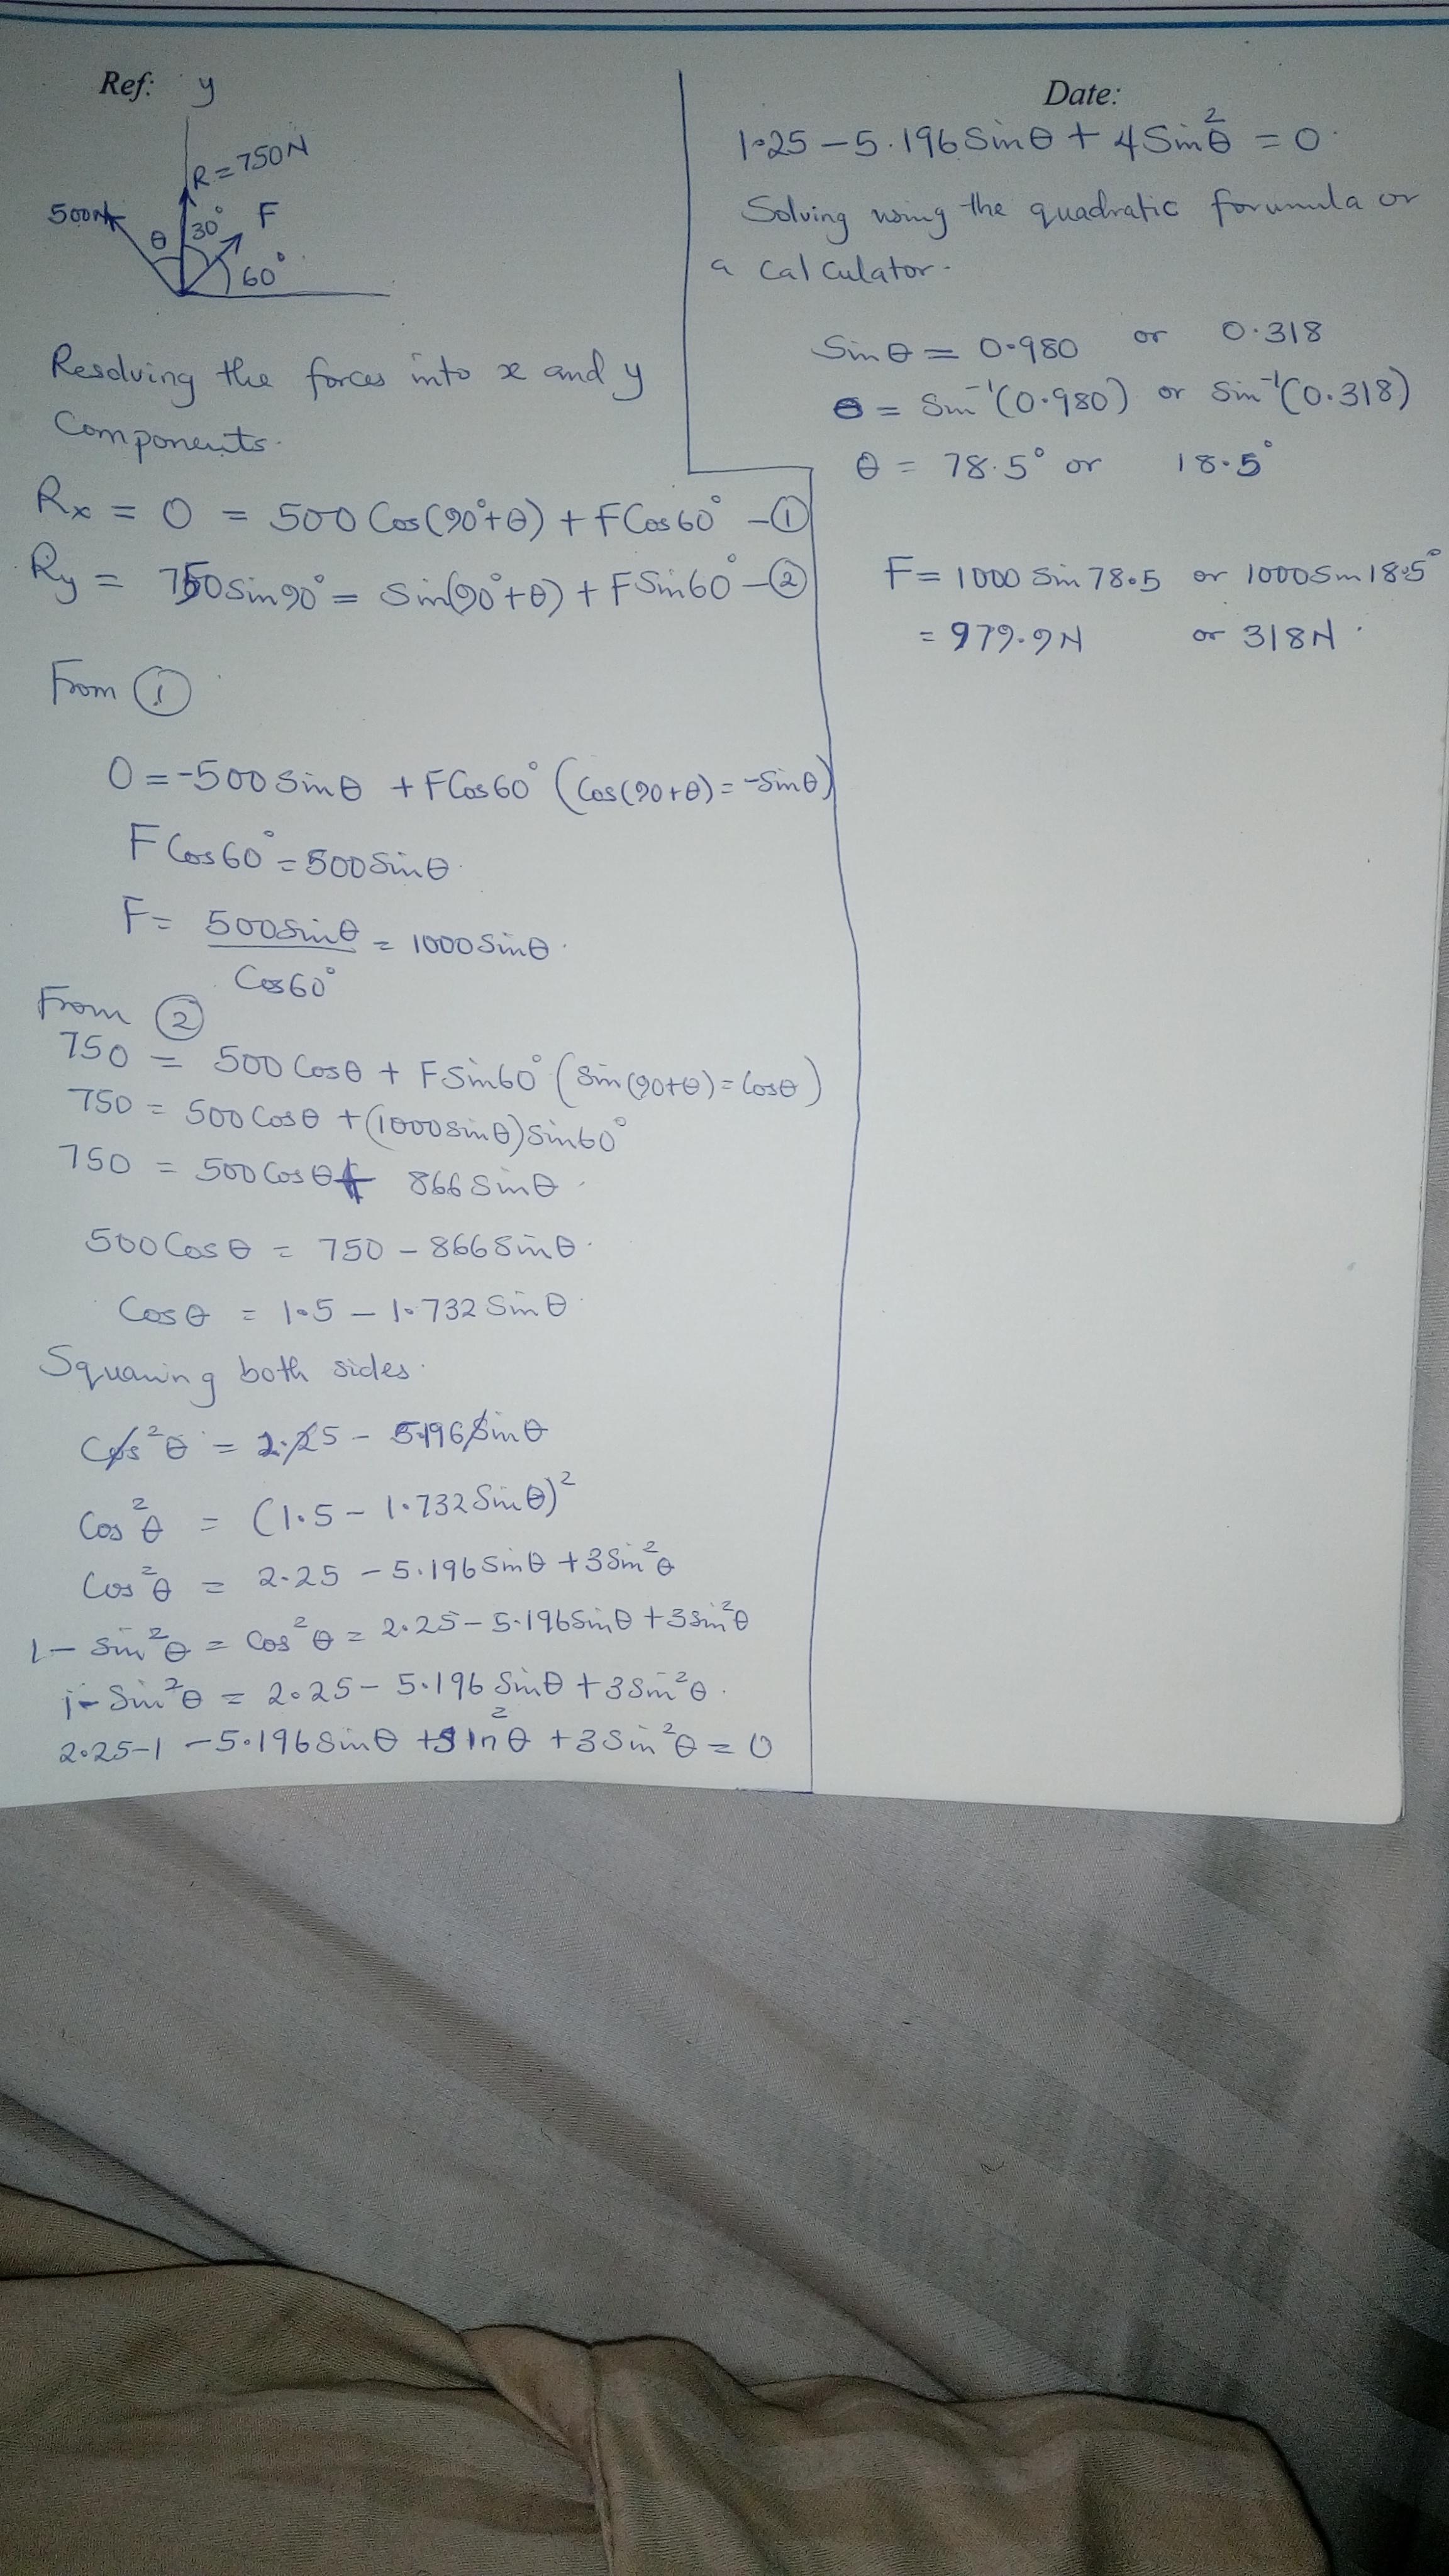 Ref: y
R = 750N
500N
θ 30° F
60°
Resolving the forces into x and y
Components.
Rx = 0 = 500 Cos(90°+θ) + FCos60° -①
Ry = 750Sin90° = Sin(90°+θ) + FSin60° -②
From ①
0 = -500 Sinθ + FCos60° (Cos(90+θ) = -Sinθ)
F Cos60° = 500Sinθ.
F = 500Sinθ = 1000Sinθ.
Cos60°
From ②
750 = 500 Cosθ + FSin60° (Sin(90+θ) = Cosθ)
750 = 500 Cosθ + (1000Sinθ)Sin60°
750 = 500 Cosθ + 866 Sinθ.
500 Cosθ = 750 - 866Sinθ.
Cosθ = 1.5 - 1.732 Sinθ.
Squaring both sides.
Cos²θ = 2.25 - 5.196Sinθ
Cos²θ = (1.5 - 1.732Sinθ)²
Cos²θ = 2.25 - 5.196Sinθ + 3Sin²θ
1 - Sin²θ = Cos²θ = 2.25 - 5.196Sinθ + 3Sin²θ
1 - Sin²θ = 2.25 - 5.196 Sinθ + 3Sin²θ.
2.25-1 - 5.196Sinθ + Sin²θ + 3Sin²θ = 0
Date:
1.25 - 5.196 Sinθ + 4Sin²θ = 0.
Solving using the quadratic forumula or
a calculator.
Sinθ = 0.980 or 0.318
θ = Sin⁻¹(0.980) or Sin⁻¹(0.318)
θ = 78.5° or 18.5°
F = 1000 Sin 78.5 or 1000Sin18.5°
= 979.9N or 318N.